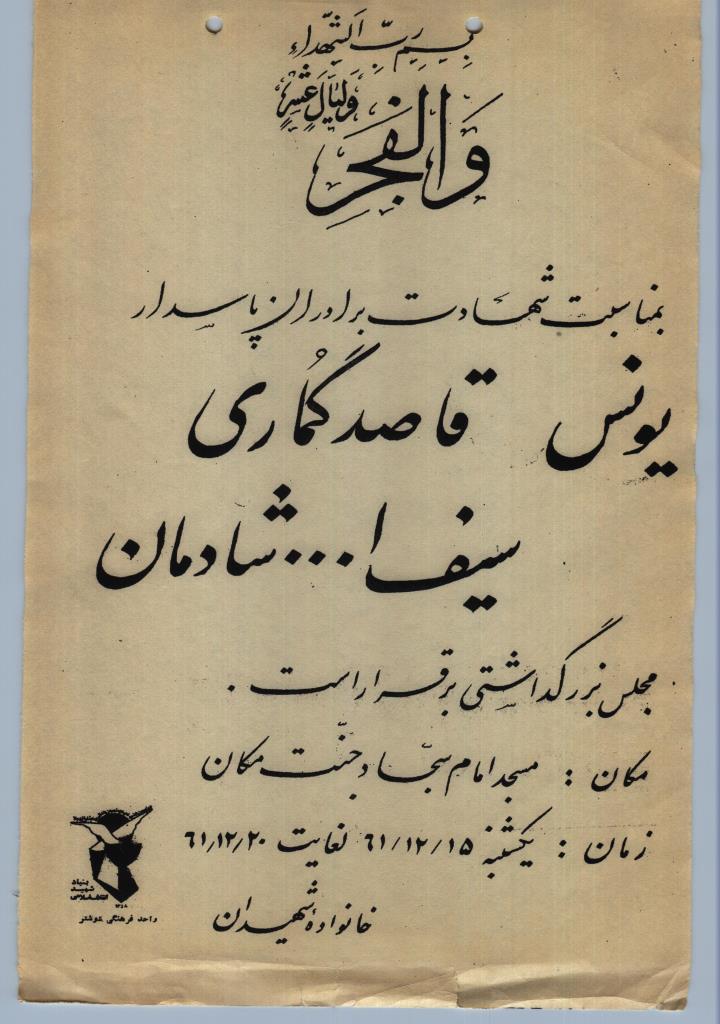 بِسیمِ رَبِّ الشّهداءِ
وَلَیٰالٍ عَشْرٍ
وَالْفَجْرِ
بمناسبت شهادت برادران پاسدار
یونس قاصد گُماری
سیف ا... شادمان
مجلس بزرگداشتی برقرار است .
مکان : مسجد امام سجّاد جنّت مکان
زمان : یکشنبه ٦١/١٢/١٥ لغایت ٦١/١٢/٢٠
خانوادهٔ شهیدان
بنیاد
شهید
انقلاب اسلامی
واحد فرهنگی شوشتر